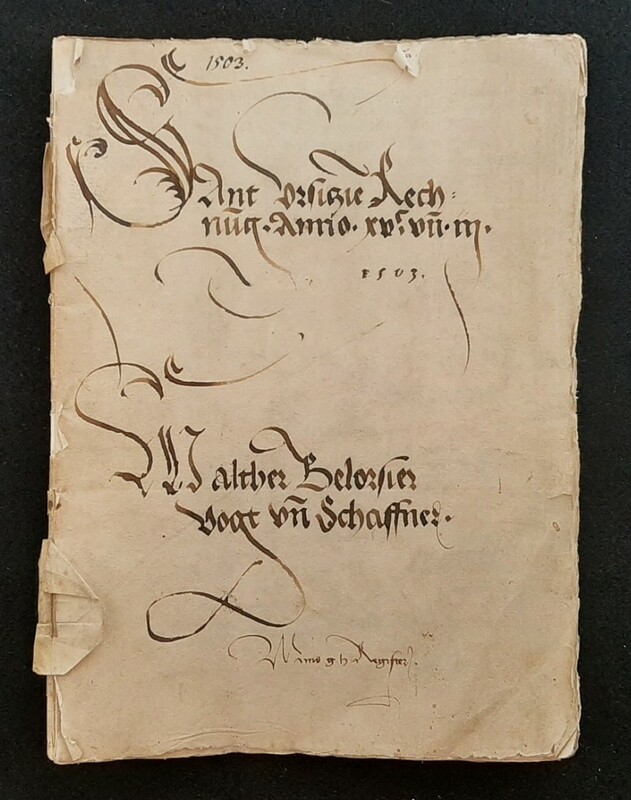 1503.
Sant Vrsizie Rech=
nūg. Anno. xvᶜ vn̄. iij.
1503.
Walther Belorsier
Vogt vn̄ Schaffner.
Register.